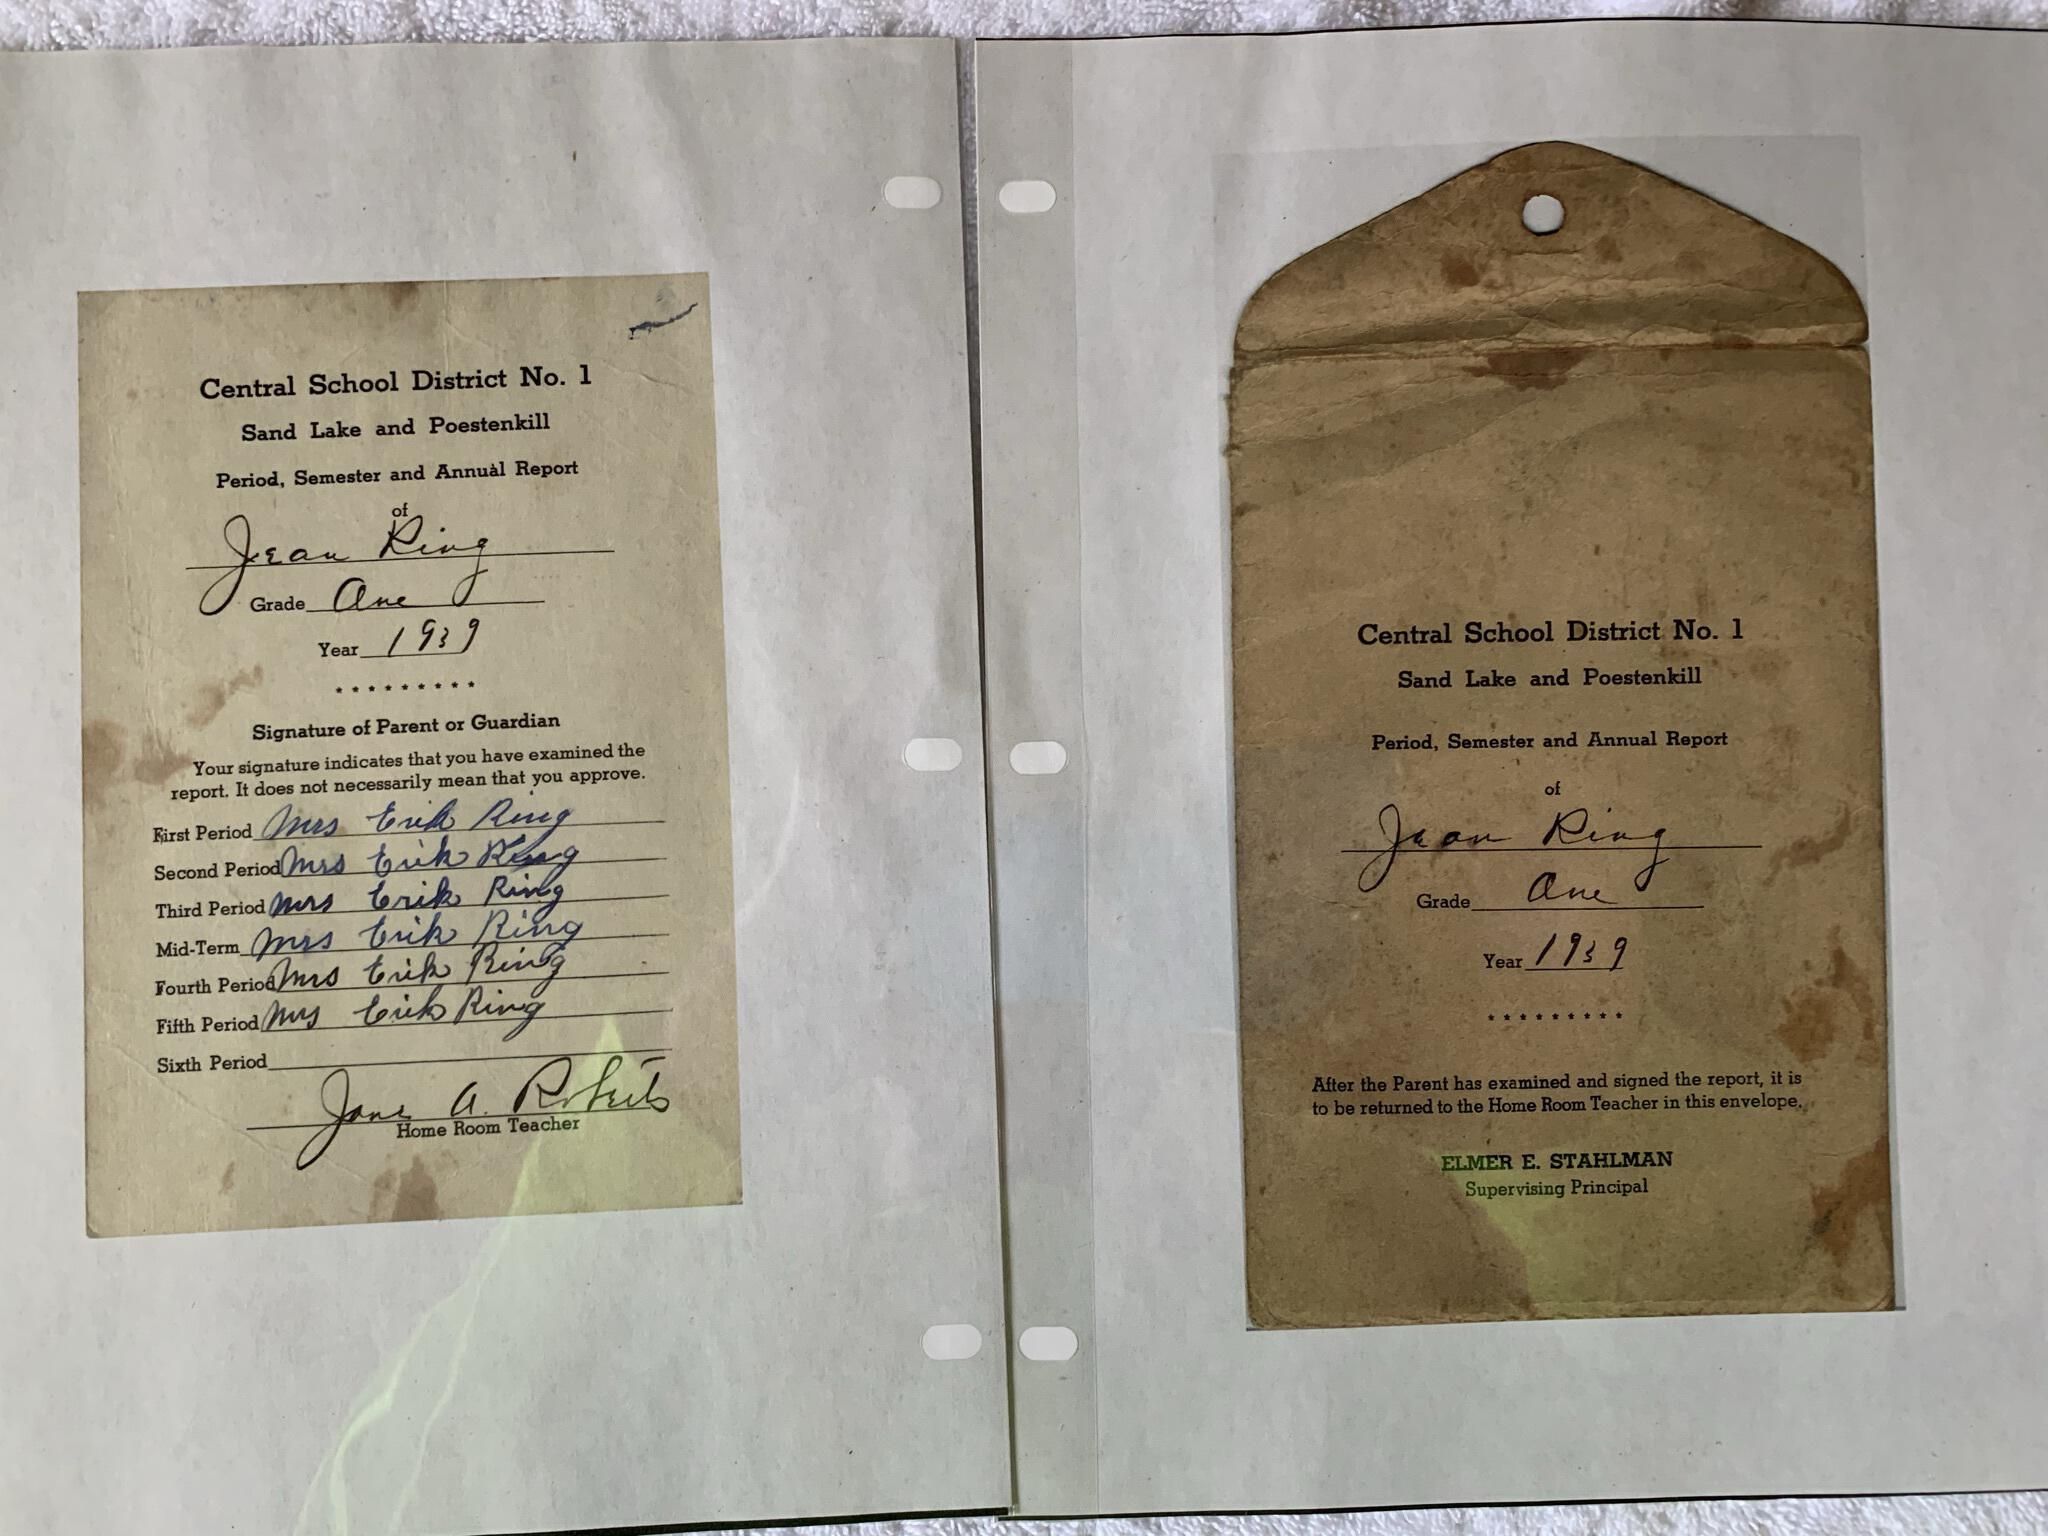 Central School District No. 1
Sand Lake and Poestenkill
Period, Semester and Annual Report
of
Jean Ring
Grade One
Year 1939
* * * * * * * * *
Signature of Parent or Guardian
Your signature indicates that you have examined the
report. It does not necessarily mean that you approve.
First Period Mrs Erik Ring
Second Period Mrs Erik Ring
Third Period Mrs Erik Ring
Mid-Term Mrs Erik Ring
Fourth Period Mrs Erik Ring
Fifth Period Mrs Erik Ring
Sixth Period
Jane A. Roberts
Home Room Teacher
Central School District No. 1
Sand Lake and Poestenkill
Period, Semester and Annual Report
of
Jean Ring
Grade One
Year 1939
* * * * * * * * *
After the Parent has examined and signed the report, it is
to be returned to the Home Room Teacher in this envelope.
ELMER E. STAHLMAN
Supervising Principal